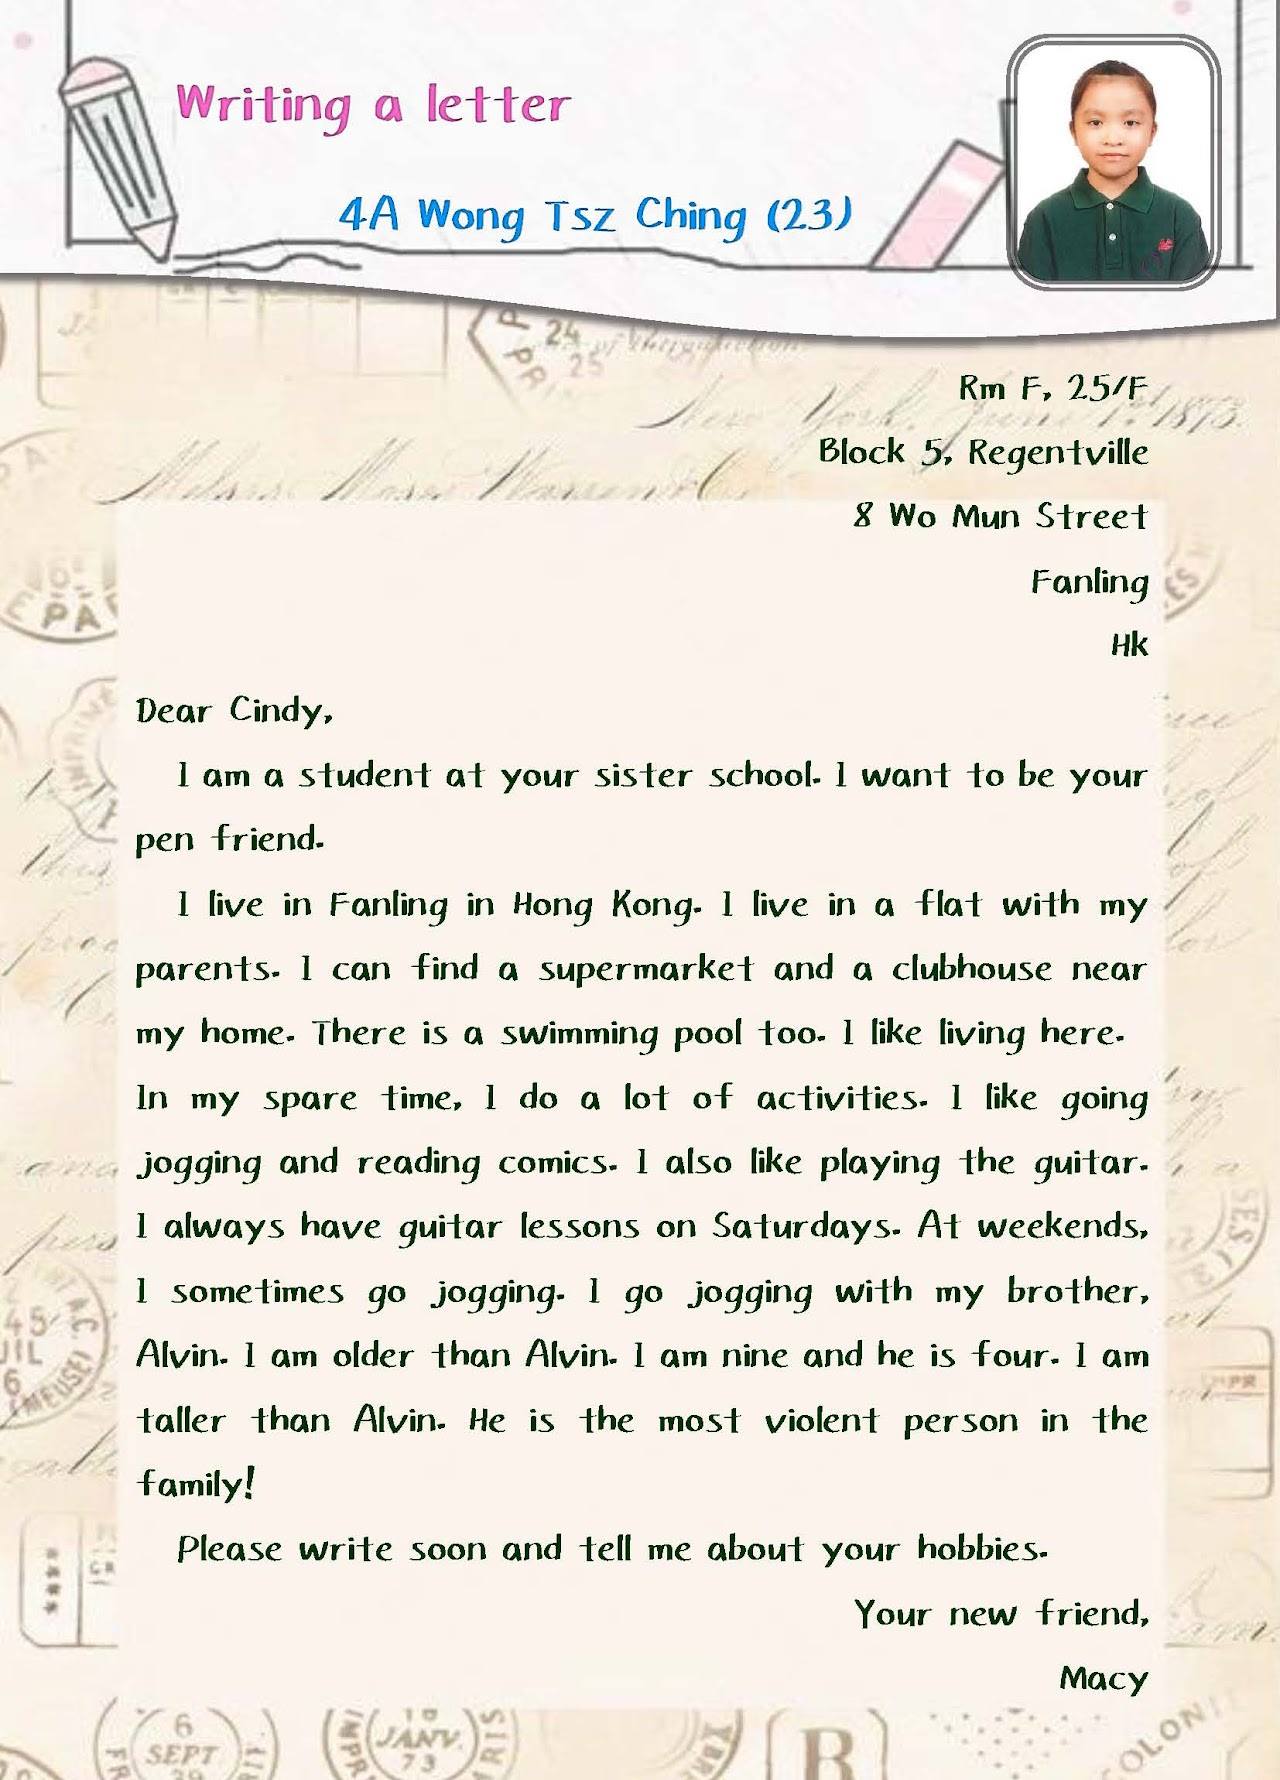 Writing a letter
4A Wong Tsz Ching (23)
24
25
New York, June 1st 1873.
Rm F, 25/F
Block 5, Regentville
8 Wo Mun Street
Fanling
Hk
Dear Cindy,
I am a student at your sister school. I want to be your
pen friend.
I live in Fanling in Hong Kong. I live in a flat with my
parents. I can find a supermarket and a clubhouse near
my home. There is a swimming pool too. I like living here.
In my spare time, I do a lot of activities. I like going
jogging and reading comics. I also like playing the guitar.
I always have guitar lessons on Saturdays. At weekends,
I sometimes go jogging. I go jogging with my brother,
Alvin. I am older than Alvin. I am nine and he is four. I am
taller than Alvin. He is the most violent person in the
family!
Please write soon and tell me about your hobbies.
Your new friend,
Macy
6
SEPT
JANV.
73
R